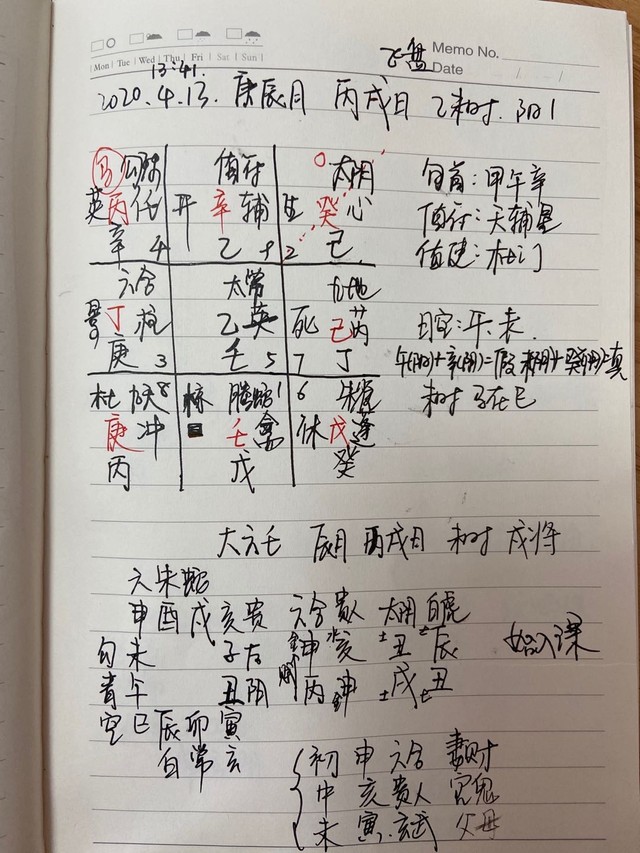 Mon Tue Wed Thu Fri Sat Sun
飞盘 Memo No.
Date
13:41.
2020.4.13. 庚辰月 丙戌日 乙未时. 阳1
马 值符 太阴
英 丙 任 开 辛 辅 生 癸 心
辛 4 乙 9 2 己
旬首:甲午辛
值符:天辅星
值使:杜门
六合 太常 九地
景 丁 乙 英 死 己 芮
庚 3 壬 5 7 丁
日空:午.未.
未时 马在巳
杜 九天8 螣蛇1 6 朱雀
庚 冲 壬 禽 休 戊 蓬
丙 戊 癸
大六壬 辰月 丙戌日 未时 戌将
六 朱 蛇
申 酉 戌 亥 贵 六合 贵人 太阴 白虎
勾 未 子 后 申 亥 丑 辰
青 午 丑 阴 丙 申 戌 丑
空 巳 辰 卯 寅
白 常 玄
初 申 六合 妻财
中 亥 贵人 官鬼
末 寅.玄武 父母